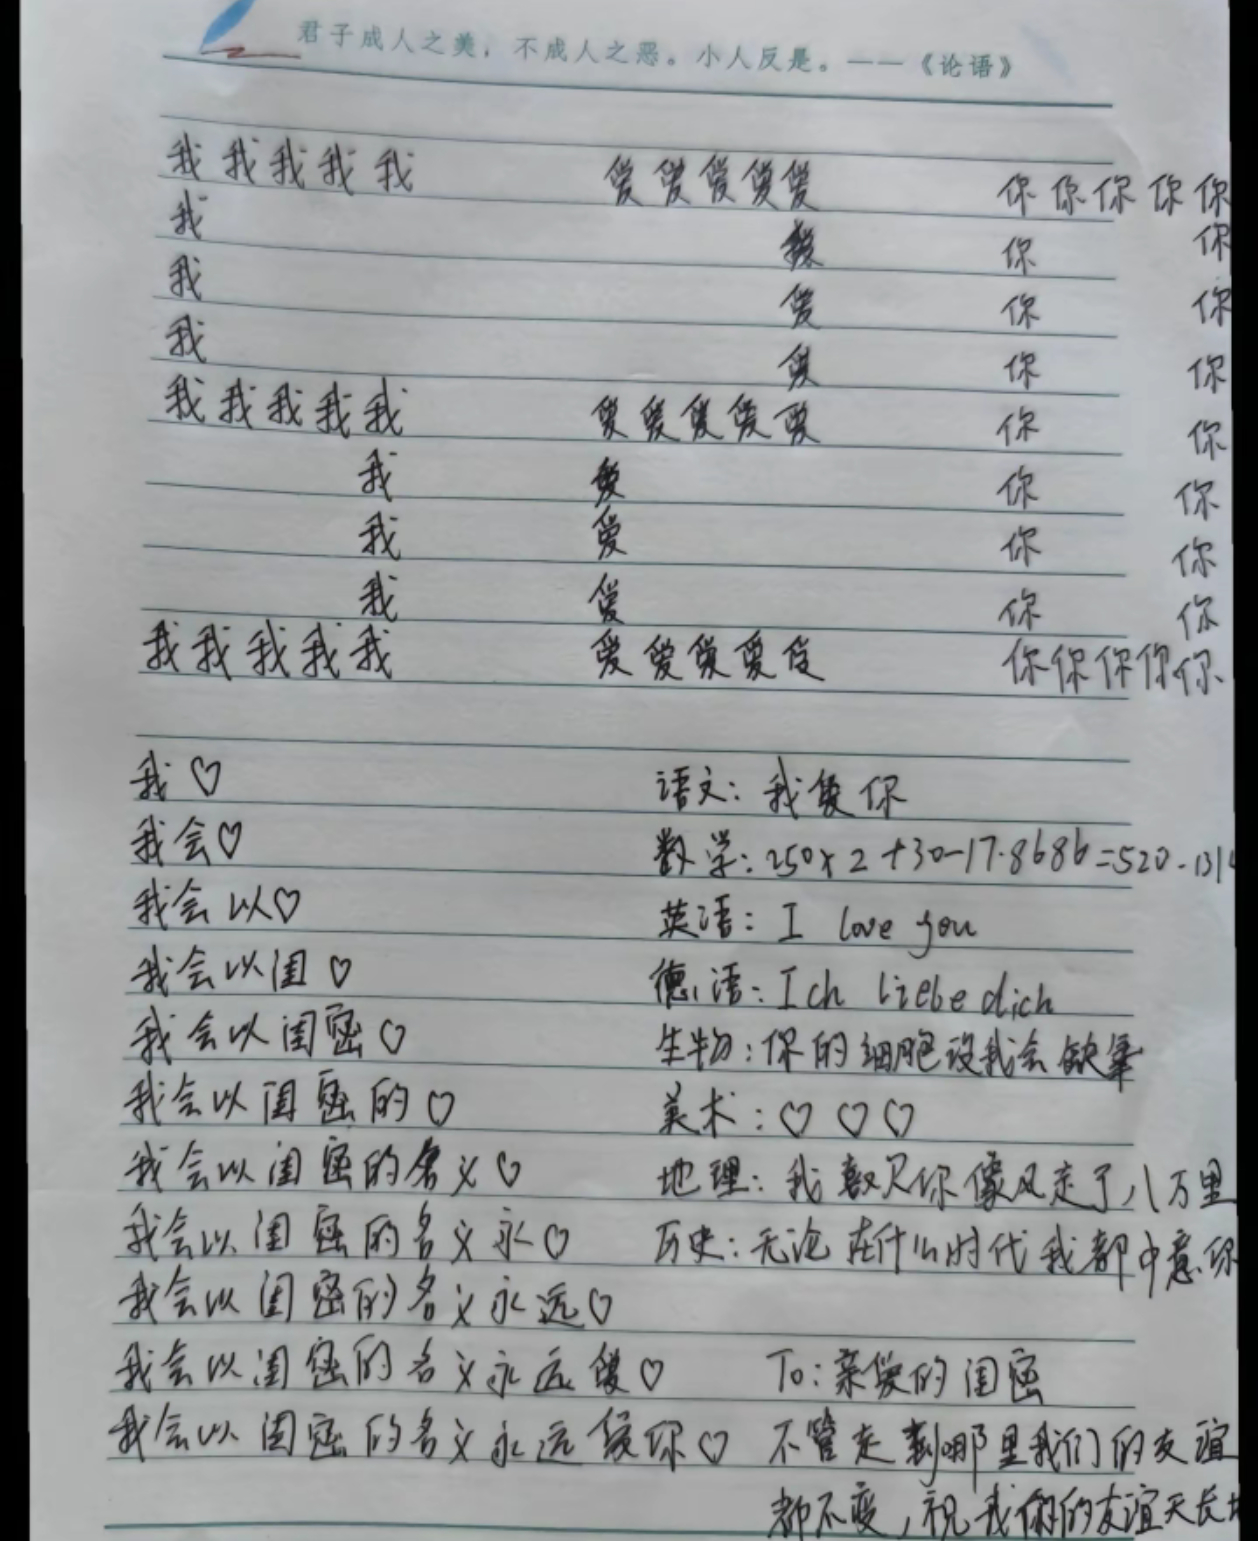 君子成人之美，不成人之恶。小人反是。——《论语》
我我我我我 爱爱爱爱爱 你你你你你
我 爱 你 你
我 爱 你 你
我 爱 你 你
我我我我我 爱爱爱爱爱 你 你
我 爱 你 你
我 爱 你 你
我 爱 你 你
我我我我我 爱爱爱爱爱 你你你你你
我♡ 语文：我爱你
我会♡ 数学：250×2+30-17.8686=520.131
我会以♡ 英语：I love you
我会以闺♡ 德语：Ich liebe dich
我会以闺密♡ 生物：你的细胞没我会缺氧
我会以闺密的♡ 美术：♡♡♡
我会以闺密的名义♡ 地理：我喜欢你像风走了八万里
我会以闺密的名义永♡ 历史：无论在什么时代我都中意你
我会以闺密的名义永远♡
我会以闺密的名义永远爱♡ To：亲爱的闺密
我会以闺密的名义永远爱你♡ 不管走到哪里我们的友谊
都不变，祝我们的友谊天长